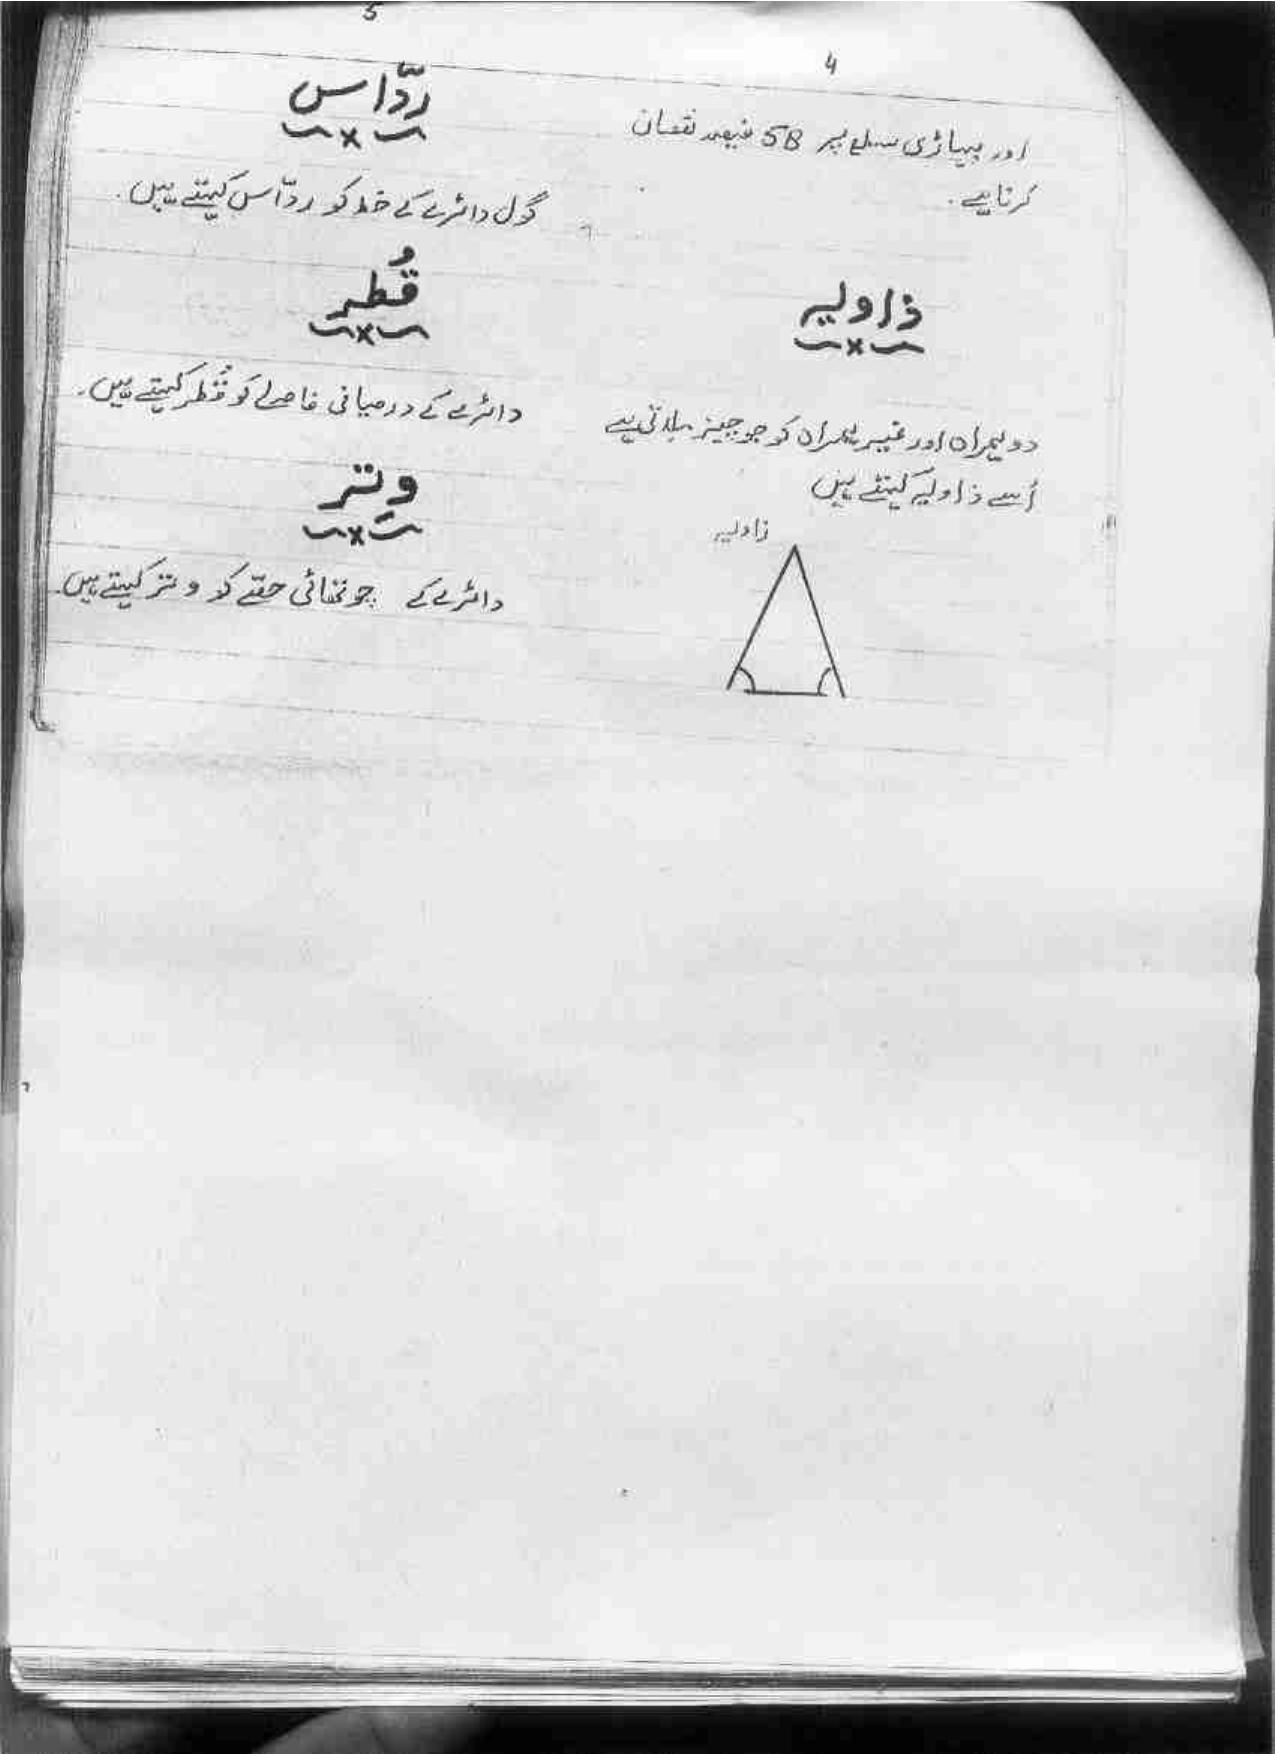 4
اور پہاڑی سطح پر 58 فیصد نقصان
کرتا ہے۔
ذاویہ
دو ہمراہ اور غیر ہمراہ کو جو چیز ملاتی ہے
اُسے ذاویہ کہتے ہیں
زاویہ
5
ردّاس
گول دائرے کے خط کو ردّاس کہتے ہیں۔
قُطر
دائرے کے درمیانی فاصلے کو قُطر کہتے ہیں۔
وِتر
دائرے کے چوتھائی حصّے کو وتر کہتے ہیں۔